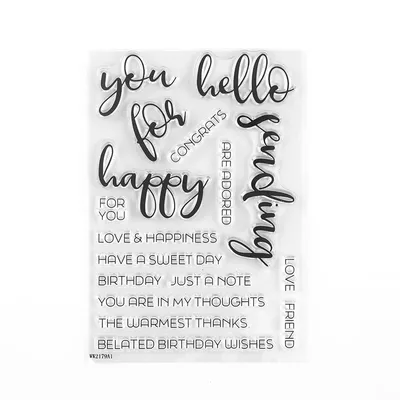 you hello
for
CONGRATS
sending
ARE ADORED
happy
FOR
YOU
LOVE & HAPPINESS
HAVE A SWEET DAY
BIRTHDAY JUST A NOTE
YOU ARE IN MY THOUGHTS
THE WARMEST THANKS
BELATED BIRTHDAY WISHES
LOVE FRIEND
WW2179A1